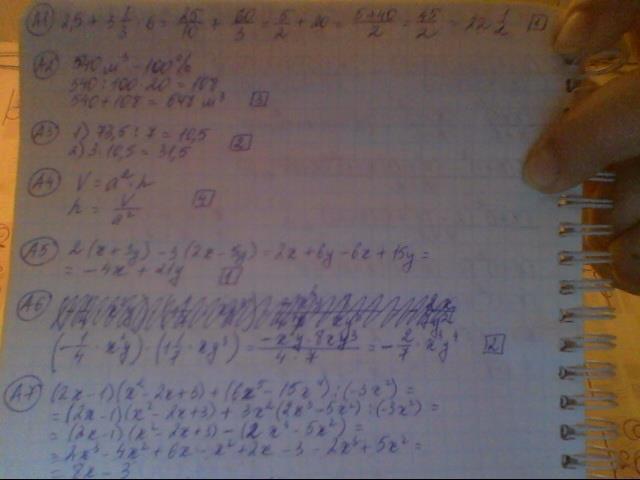 A1 2,5 + 3 1/3 · 6 = 25/10 + 60/3 = 5/2 + 20 = 5+40/2 = 45/2 = 22 1/2 1
A2 540 м³ - 100%
540 : 100 · 20 = 108
540 + 108 = 648 м³ 3
A3 1) 73,5 : 7 = 10,5
2) 3 · 10,5 = 31,5 2
A4 V = a² · h
h = V/a² 4
A5 2(x + 3y) - 3(2x - 5y) = 2x + 6y - 6x + 15y =
= -4x + 21y 1
A6
(-1/4 · x³y) · (1 1/7 · xy³) = -x³y · 8xy³/4 · 7 = -2/7 · x⁴y⁴ 2
A7 (2x - 1)(x² - 2x + 3) + (6x⁵ - 15x⁴) : (-3x²) =
= (2x - 1)(x² - 2x + 3) + 3x²(2x³ - 5x²) : (-3x²) =
= (2x - 1)(x² - 2x + 3) - (2x³ - 5x²) =
= 2x³ - 4x² + 6x - x² + 2x - 3 - 2x³ + 5x² =
= 8x - 3